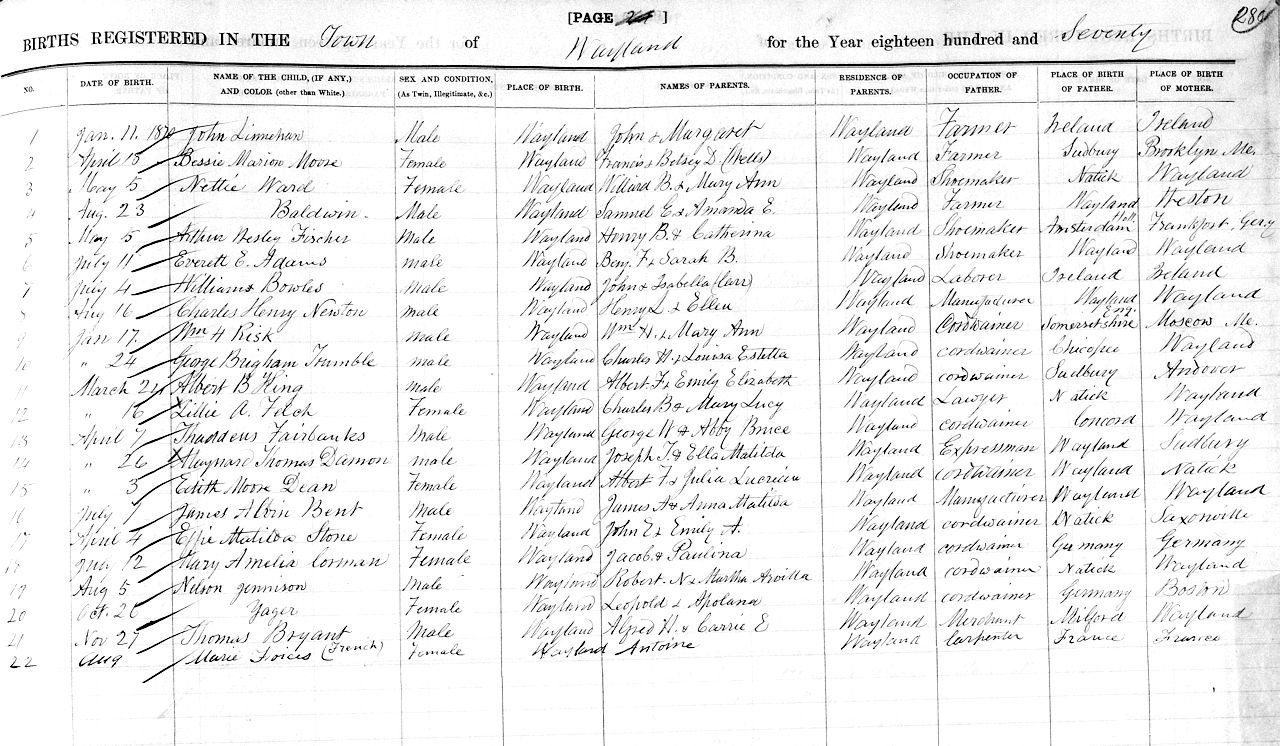 [PAGE 24 ]
280
BIRTHS REGISTERED IN THE Town of Wayland for the Year eighteen hundred and Seventy
NO. DATE OF BIRTH. NAME OF THE CHILD, (IF ANY,) AND COLOR (other than White.) SEX AND CONDITION, (As Twin, Illegitimate, &c.) PLACE OF BIRTH. NAMES OF PARENTS. RESIDENCE OF PARENTS. OCCUPATION OF FATHER. PLACE OF BIRTH OF FATHER. PLACE OF BIRTH OF MOTHER.
1 Jan. 11. 1870 John Linnehan Male Wayland John & Margaret Wayland Farmer Ireland Ireland
2 April 18 Bessie Marion Moore Female Wayland Francis & Betsey D. (Wells) Wayland Farmer Sudbury Brooklyn Me.
3 May 5 Nettie Ward Female Wayland Willard B. & Mary Ann Wayland Shoemaker Natick Wayland
4 Aug. 23 Baldwin. Male Wayland Samuel E. & Amanda E. Wayland Farmer Wayland Weston
5 May 5 Arthur Wesley Fischer Male Wayland Henry B. & Catherina Wayland Shoemaker Amsterdam Holl. Frankfort, Gery
6 July 11 Everett E. Adams male Wayland Benj. F. & Sarah B. Wayland Shoemaker Wayland Wayland
7 July 4 William Bowles male Wayland John & Isabella Wayland Laborer Ireland Ireland
8 Aug 16 Charles Henry Newton male Wayland Henry L. & Ellen Wayland Manufacturer Wayland Wayland
9 Jan 17. Wm H Risk male Wayland Wm H. & Mary Ann Wayland Cordwainer Somersetshire Eng. Moscow Me.
10 " 24 George Brigham Trumble male Wayland Charles H. & Louisa Estella Wayland cordwainer Chicopee Wayland
11 March 24 Albert B King male Wayland Albert F. & Emily Elizabeth Wayland cordwainer Sudbury Andover
12 " 16 Lillie A. Felch Female Wayland Charles B & Mary Lucy Wayland Lawyer Natick Wayland
13 April 7 Thaddeus Fairbanks Male Wayland George W & Abby Bruce Wayland cordwainer Concord Wayland
14 " 26 Maynard Thomas Damon male Wayland Joseph T. & Ella Matilda Wayland Expressman Wayland Sudbury
15 " 3 Edith Moore Dean Female Wayland Albert F. & Julia Lucricia Wayland cordwainer Wayland Natick
16 July 1 James Albin Bent Male Wayland James A & Anna Matilda Wayland Manufacturer Wayland Wayland
17 April 4 Effie Matilda Stone Female Wayland John E & Emily A. Wayland cordwainer Natick Saxonville
18 July 12 Mary Amelia Corman Female Wayland Jacob & Paulina Wayland cordwainer Germany Germany
19 Aug 5 Nelson Jennison Male Wayland Robert N & Martha Arvilla Wayland cordwainer Natick Wayland
20 Oct. 26 Yager Female Wayland Leopold & Apolana Wayland cordwainer Germany Boston
21 Nov 27 Thomas Bryant Male Wayland Alfred H. & Carrie E Wayland Merchant Milford Wayland
22 Aug Marie (French) Female Wayland Antoine Wayland Carpenter France France